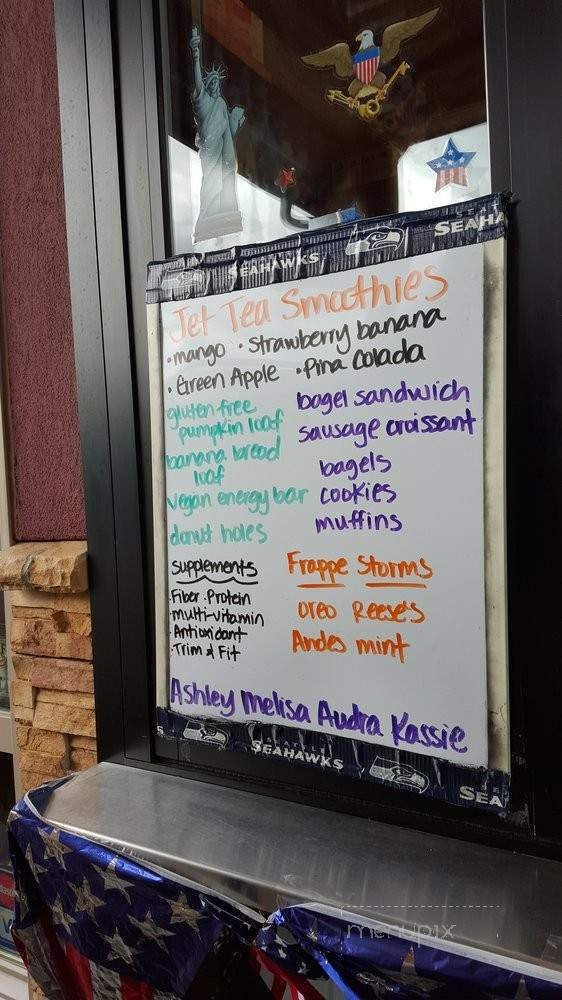 SEAHAWKS
SEAHA
Jet Tea Smoothies
• mango • Strawberry banana
• Green Apple • Pina Colada
gluten free
pumpkin loaf
banana bread
loaf
vegan energy bar
donut holes
bagel sandwich
sausage croissant
bagels
cookies
muffins
Supplements
• Fiber • Protein
• multi-vitamin
• Antioxidant
• Trim & Fit
Frappe Storms
Oreo Reese's
Andes mint
Ashley Melisa Audra Kassie
S
SEAHAWKS
SEA
menupix